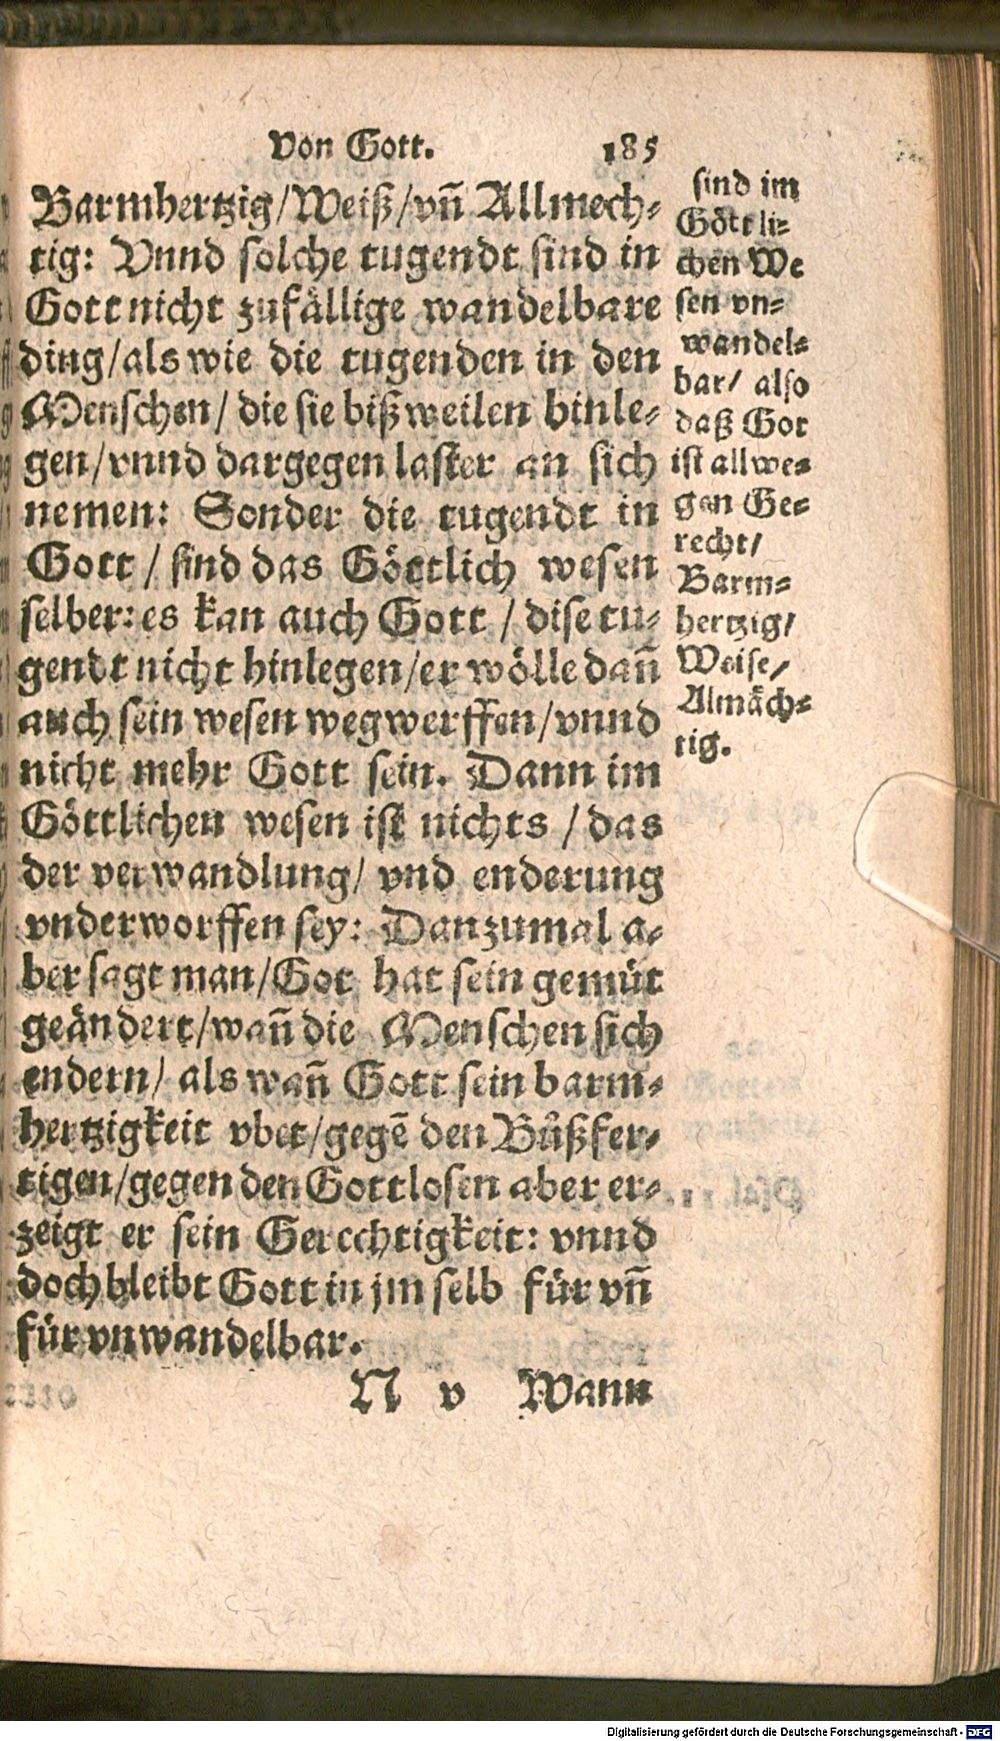 Von Gott. 185
Barmhertzig/Weiß/vñ Allmech-
tig: Vnnd solche tugendt sind in
Gott nicht zufällige wandelbare
ding/als wie die tugenden in den
Menschen/ die sie bißweilen hinle-
gen/vnnd dargegen laster an sich
nemen: Sonder die tugendt in
Gott / sind das Göttlich wesen
selber: es kan auch Gott / dise tu-
gendt nicht hinlegen/er wölle dañ
auch sein wesen wegwerffen/vnnd
nicht mehr Gott sein. Dann im
Göttlichen wesen ist nichts / das
der verwandlung/ vnd enderung
vnderworffen sey: Danzumal a-
ber sagt man/Got hat sein gemüt
geändert/wañ die Menschen sich
endern/ als wañ Gott sein barm-
hertzigkeit vbet/gegẽ den Bůßfer-
tigen/gegen den Gottlosen aber er-
zeigt er sein Gerechtigkeit: vnnd
doch bleibt Gott in jm selb für vñ
für vnwandelbar.
N v Wann
sind im
Göttli-
chen We
sen vn-
wandel-
bar/ also
daß Got
ist allwe-
gen Ge-
recht/
Barm-
hertzig/
Weise/
Almäch-
tig.
Digitalisierung gefördert durch die Deutsche Forschungsgemeinschaft - DFG